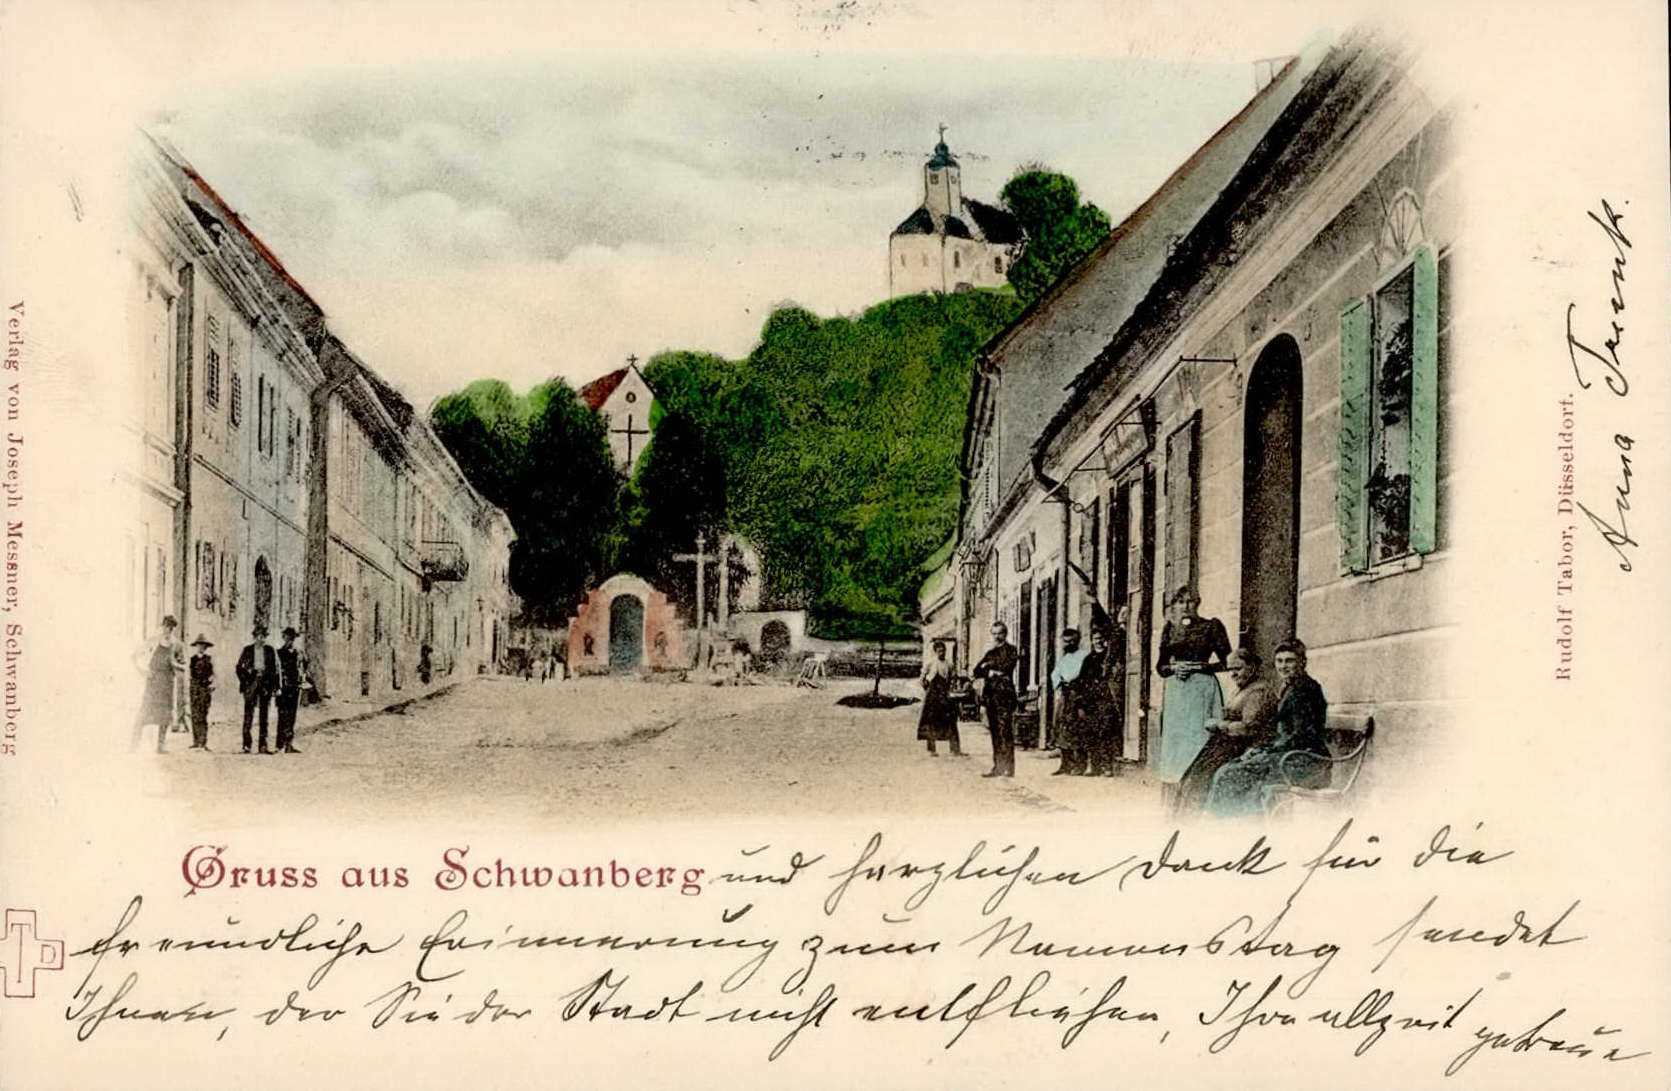 Gruss aus Schwanberg und herzlichen Dank für die
freundliche Erinnerung zum Namenstag sendet
Ihnen, der Sie der Stadt nicht entfliehen, Ihre allzeit getreue
Anna Trunk.
Verlag von Joseph Messner, Schwanberg
Rudolf Tabor, Düsseldorf.
T D